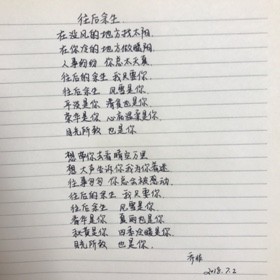 往后余生.
在没风的地方找太阳
在你冷的地方做暖阳
人事纷纷 你总太天真
往后的余生 我只要你
往后余生 风雪是你
平淡是你 清贫也是你
荣华是你 心底温柔是你
目光所致 也是你
想带你去看晴空万里
想大声告诉你我为你着迷
往事匆匆 你总会被感动
往后的余生 我只要你
往后余生 风雪是你
春华是你 夏雨也是你
秋黄是你 四季冷暖是你
目光所致 也是你.
2018.7.2